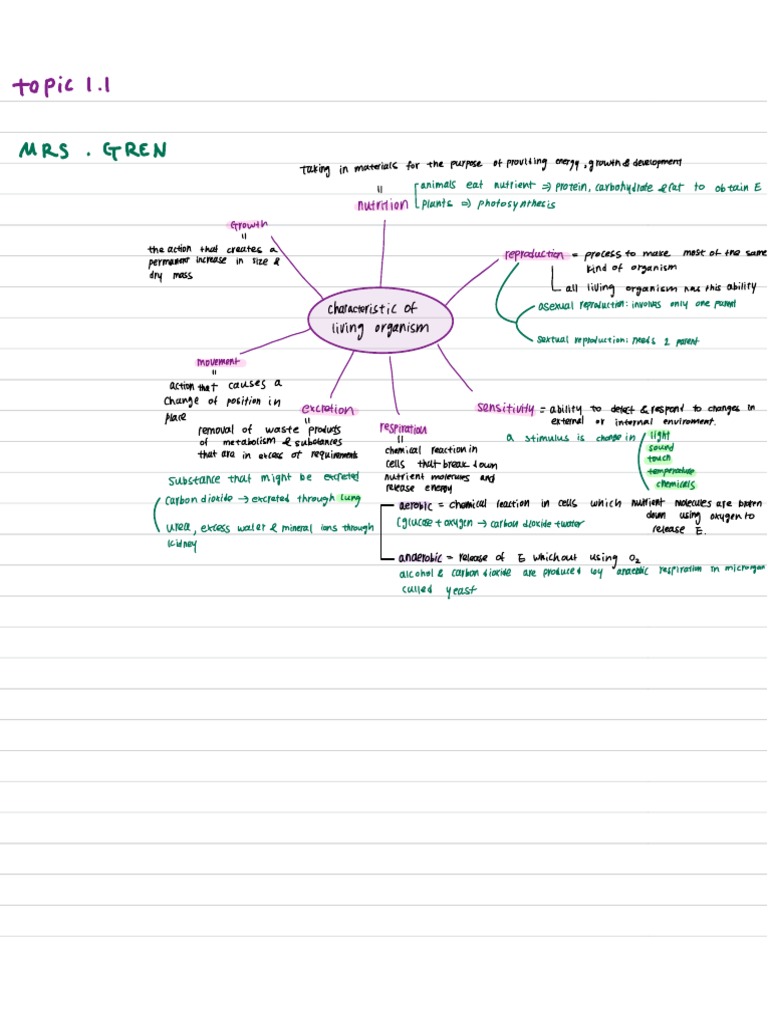 topic 1.1
MRS . GREN
taking in materials for the purpose of providing energy, growth & development
"
nutrition
animals eat nutrient => protein, carbohydrate & fat to obtain E
plants => photosynthesis
Growth
"
the action that creates a
permanent increase in size &
dry mass
reproduction = process to make most of the same
kind of organism
all living organism has this ability
asexual reproduction: involves only one parent
sextual reproduction: needs 2 parent
characteristic of
living organism
movement
"
action that causes a
change of position in
place
excretion
"
removal of waste products
of metabolism & substances
that are in excess of requirements
substance that might be excreted
carbon dioxide → excreted through lung
urea, excess water & mineral ions through
kidney
respiration
"
chemical reaction in
cells that break down
nutrient molecules and
release energy
aerobic = chemical reaction in cells which nutrient molecules are broken
down using oxygen to
release E.
(glucose + oxygen → carbon dioxide + water
anaerobic = release of E whichout using O2
alcohol & carbon dioxide are produced by anaerobic respiration in microrgan
called yeast
sensitivity = ability to detect & respond to changes in
external or internal enviroment.
a stimulus is change in
light
sound
touch
temperature
chemicals